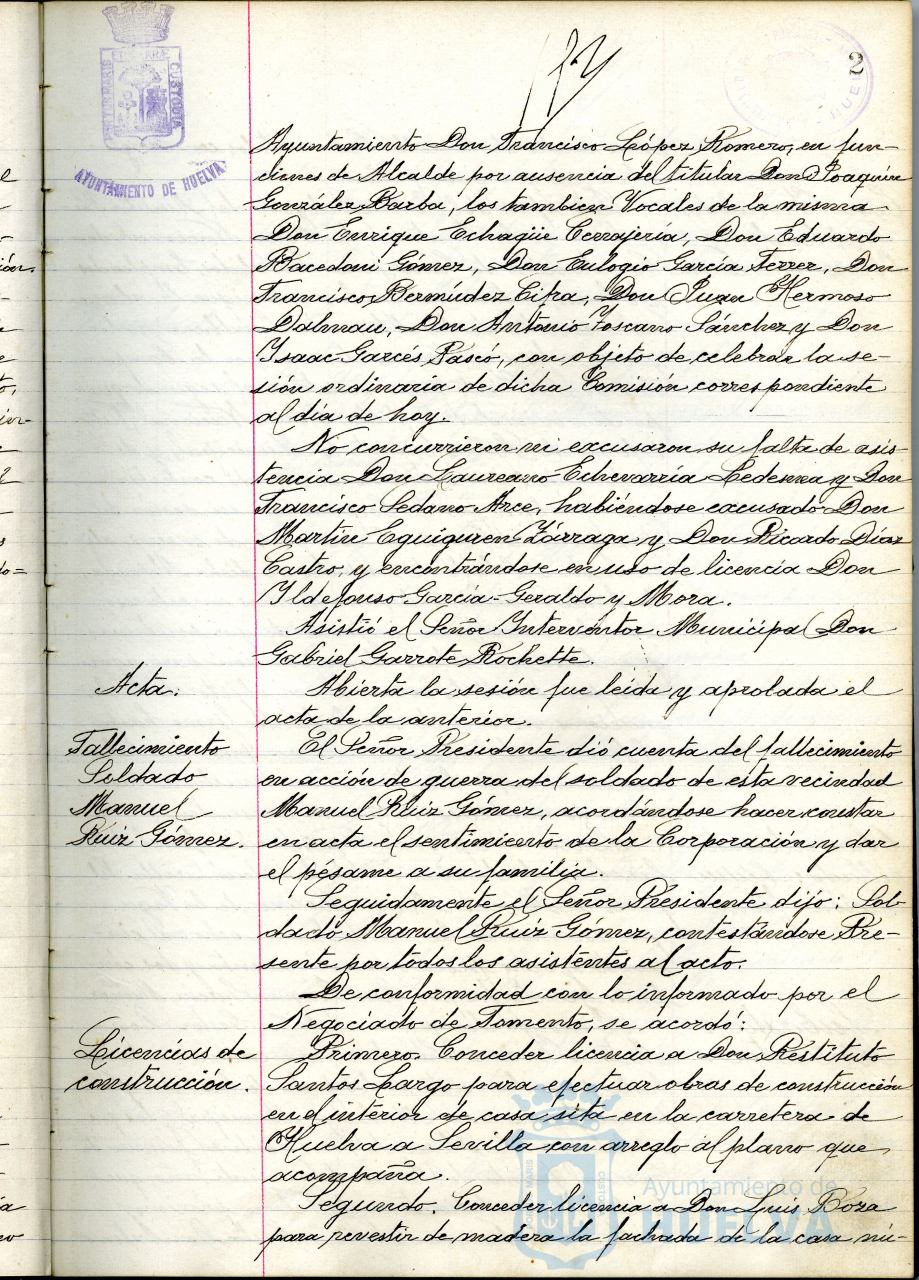 2
PORTUS MARIS ET TERRAE CUSTODIA
AYUNTAMIENTO DE HUELVA
Ayuntamiento Don Francisco López Romero, en fun-
ciones de Alcalde por ausencia del titular Don Joaquín
González Barba, los tambien Vocales de la misma
Don Enrique Echagüe Cerrajería, Don Eduardo
Bacedoni Gómez, Don Eulogio García Ferrer, Don
Francisco Bermúdez Cifra, Don Juan Hermoso
Dalmau, Don Antonio Toscano Sánchez y Don
Isaac Garcés Pascó, con objeto de celebrar la se-
sión ordinaria de dicha Comisión correspondiente
al día de hoy.
No concurrieron ni excusaron su falta de asis-
tencia Don Laureano Echevarría Ledesma y Don
Francisco Sedano Arce, habiéndose excusado Don
Martín Eguiguren Zárraga y Don Ricardo Díaz
Castro, y encontrándose en uso de licencia Don
Ildefonso García-Geraldo y Mora.
Asistió el Señor Interventor Municipal Don
Gabriel Garrote Rochette.
Acta.
Abierta la sesión fue leída y aprobada el
acta de la anterior.
Fallecimiento
Soldado
Manuel
Ruiz Gómez.
El Señor Presidente dió cuenta del fallecimiento
en acción de guerra del soldado de esta vecindad
Manuel Ruiz Gómez, acordándose hacer constar
en acta el sentimiento de la Corporación y dar
el pésame a su familia.
Seguidamente el Señor Presidente dijo: Sol-
dado Manuel Ruiz Gómez, contestándose Pre-
sente por todos los asistentes al acto.
De conformidad con lo informado por el
Negociado de Fomento, se acordó:
Licencias de
construcción.
Primero. Conceder licencia a Don Restituto
Santos Largo para efectuar obras de construcción
en el interior de casa sita en la carretera de
Huelva a Sevilla con arreglo al plano que
acompaña.
Segundo. Conceder licencia a Don Luis Boza
para revestir de madera la fachada de la casa nú-
Ayuntamiento de
HUELVA